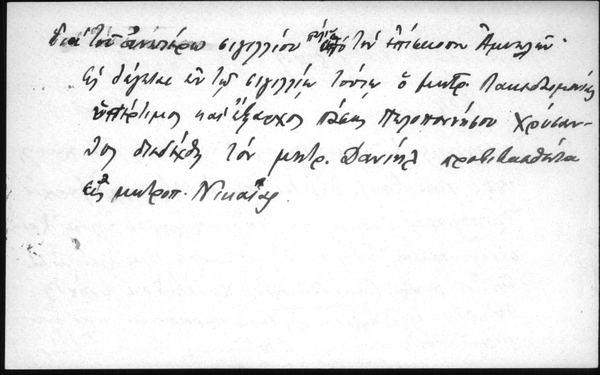 διὰ τοῦ ἀνωτέρω σιγιλλίου περὶ τὸν ἐπίσκοπον Ἀμυκλῶν.
Ὡς λέγεται ἐν τῷ σιγιλλίῳ τούτῳ ὁ μητρ. Λακεδαιμονίας
ὑπέρτιμος καὶ ἔξαρχος πάσης Πελοποννήσου Χρύσαν-
θος διεδέχθη τὸν μητρ. Δανιὴλ προβιβασθέντα
εἰς μητροπ. Νικαίας